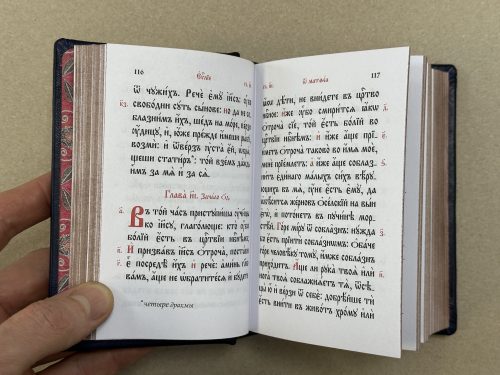 116
Ѿ чꙋжи́хъ. Речѐ є҆мꙋ̀ і҆и҃съ: ᲂу҆̀бо
свобо́дни сꙋ́ть сы́нове:
но да не со-
блазни́мъ и҆̀хъ, ше́дъ на мо́ре, ве́рзи
ᲂу҆́дицꙋ, и҆ ю҆́же пре́жде и҆́меши ры́бꙋ,
возмѝ: и҆ ѿве́рзъ ᲂу҆ста̀ є҆́й, ѡ҆бра́-
щеши стати́ръ*: то́й взе́мъ да́ждь
и҆̀мъ за мѧ̀ и҆ за сѧ̀.
Глава̀ и҃і. Зача́ло
Въ то́й ча́съ пристꙋпи́ша ᲂу҆чн҃цы̀
ко і҆и҃сꙋ, глаго́люще: кто̀ ᲂу҆́бѡ
бо́лїй є҆́сть въ црⷭ҇твїи нбⷭ҇нѣмъ;
И҆ призва́въ і҆и҃съ ѻ҆троча̀, поста́ви
є҆̀ посредѣ̀ и҆́хъ и҆ речѐ: а҆ми́нь гл҃ю
ва́мъ, а҆́ще не ѡ҆брати́тесѧ и҆ бꙋ́дете
*четыре драхмы
Ѿ матѳе́а
117
ꙗ҆́кѡ дѣ́ти, не вни́дете въ црⷭ҇тво
нбⷭ҇ное: и҆́же ᲂу҆́бо смири́тсѧ ꙗ҆́кѡ
ѻ҆троча̀ сїѐ, то́й є҆́сть бо́лїй во
црⷭ҇твїи нбⷭ҇нѣмъ: и҆ и҆́же а҆́ще прїи́-
метъ ѻ҆троча̀ таково̀ во и҆́мѧ моѐ,
менѐ прїе́млетъ: а҆ и҆́же а҆́ще собла-
зни́тъ є҆ди́наго ма́лыхъ си́хъ вѣ́рꙋ-
ющихъ въ мѧ̀, ᲂу҆́не є҆́сть є҆мꙋ̀, да
ѡ҆бѣ́ситсѧ же́рновъ ѻ҆се́льскїй на вы́и
є҆гѡ̀, и҆ пото́нетъ въ пꙋчи́нѣ мор-
стѣ́й. Го́ре мі́рꙋ ѿ собла̑знъ: нꙋ́жда
бо є҆́сть прїитѝ собла́знѡмъ: ѻ҆ба́че
го́ре человѣ́кꙋ томꙋ̀, и҆́мже собла́знъ
прихо́дитъ. А҆́ще ли рꙋка̀ твоѧ̀ и҆лѝ
нога̀ твоѧ̀ соблажнѧ́етъ тѧ̀, ѿсѣ-
цы̀ ю҆̀ и҆ ве́рзи ѿ себє̀: добрѣ́йше тѝ
є҆́сть вни́ти въ живо́тъ хро́мꙋ и҆лѝ